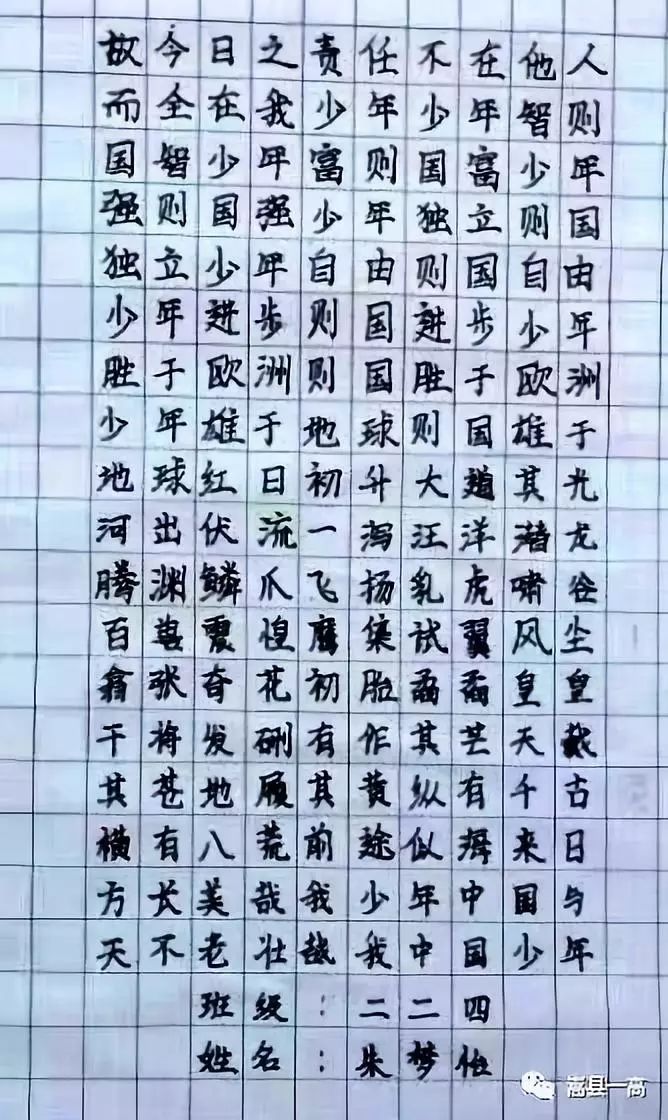 故今日之责任不在他人
而全在我少年少年智则
国智少年富则国富少年
强则国强少年独立则国
独立少年自由则国自由
少年进步则国进步少年
胜于欧洲则国胜于欧洲
少年雄于地球则国雄于
地球红日初升大道其光
河出伏流一泻汪洋潜龙
腾渊鳞爪飞扬乳虎啸谷
百兽震惶鹰隼试翼风尘
翕张奇花初胎矞矞皇皇
干将发硎有作其芒天戴
其苍地履其黄纵有千古
横有八荒前途似海来日
方长美哉我少年中国与
天不老壮哉我中国少年
班级：二二四
姓名：朱梦怡
嵩县一高